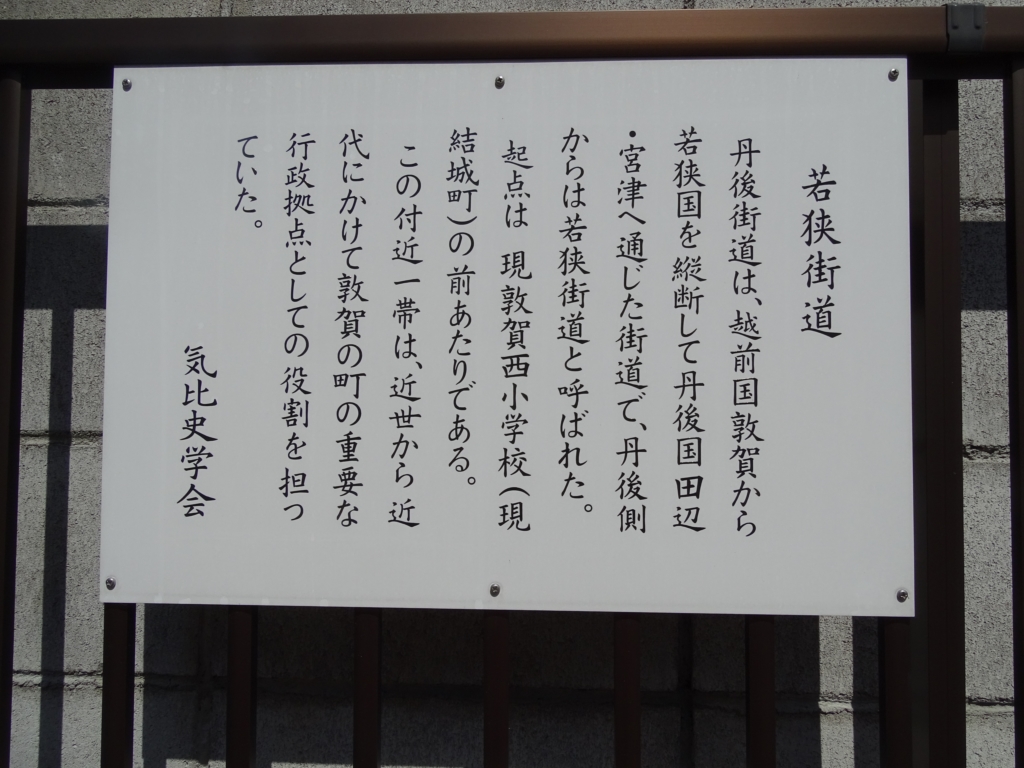 若狭街道
丹後街道は、越前国敦賀から
若狭国を縦断して丹後国田辺
・宮津へ通じた街道で、丹後側
からは若狭街道と呼ばれた。
起点は 現敦賀西小学校(現
結城町)の前あたりである。
この付近一帯は、近世から近
代にかけて敦賀の町の重要な
行政拠点としての役割を担っ
ていた。
気比史学会